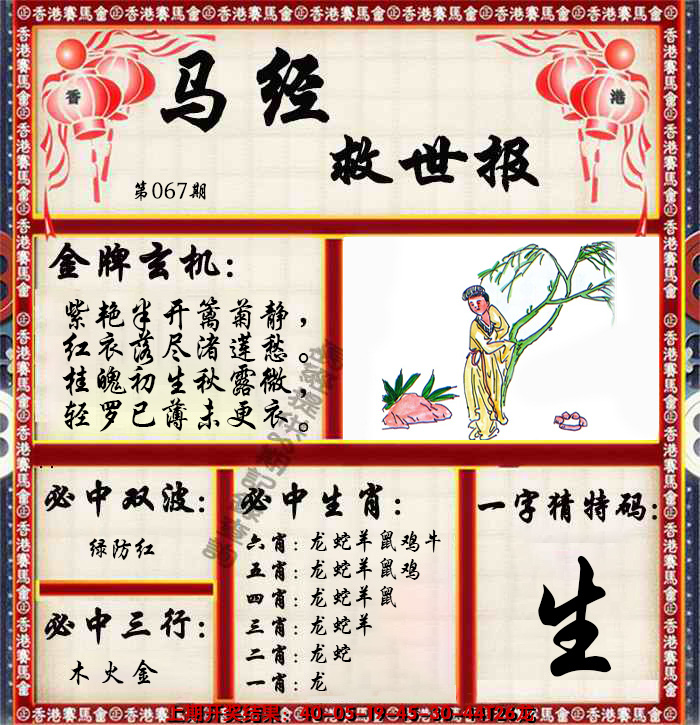 香港賽馬會
香 港
马经
救世报
第067期
金牌玄机:
紫艳半开篱菊静，
红衣落尽渚莲愁。
桂魄初生秋露微，
轻罗已薄未更衣。
必中双波:
绿防红
必中三行:
木火金
必中生肖:
六肖: 龙蛇羊鼠鸡牛
五肖: 龙蛇羊鼠鸡
四肖: 龙蛇羊鼠
三肖: 龙蛇羊
二肖: 龙蛇
一肖: 龙
一字猜特码:
生
上期开奖结果: 40-05-19-45-30-44T26龙